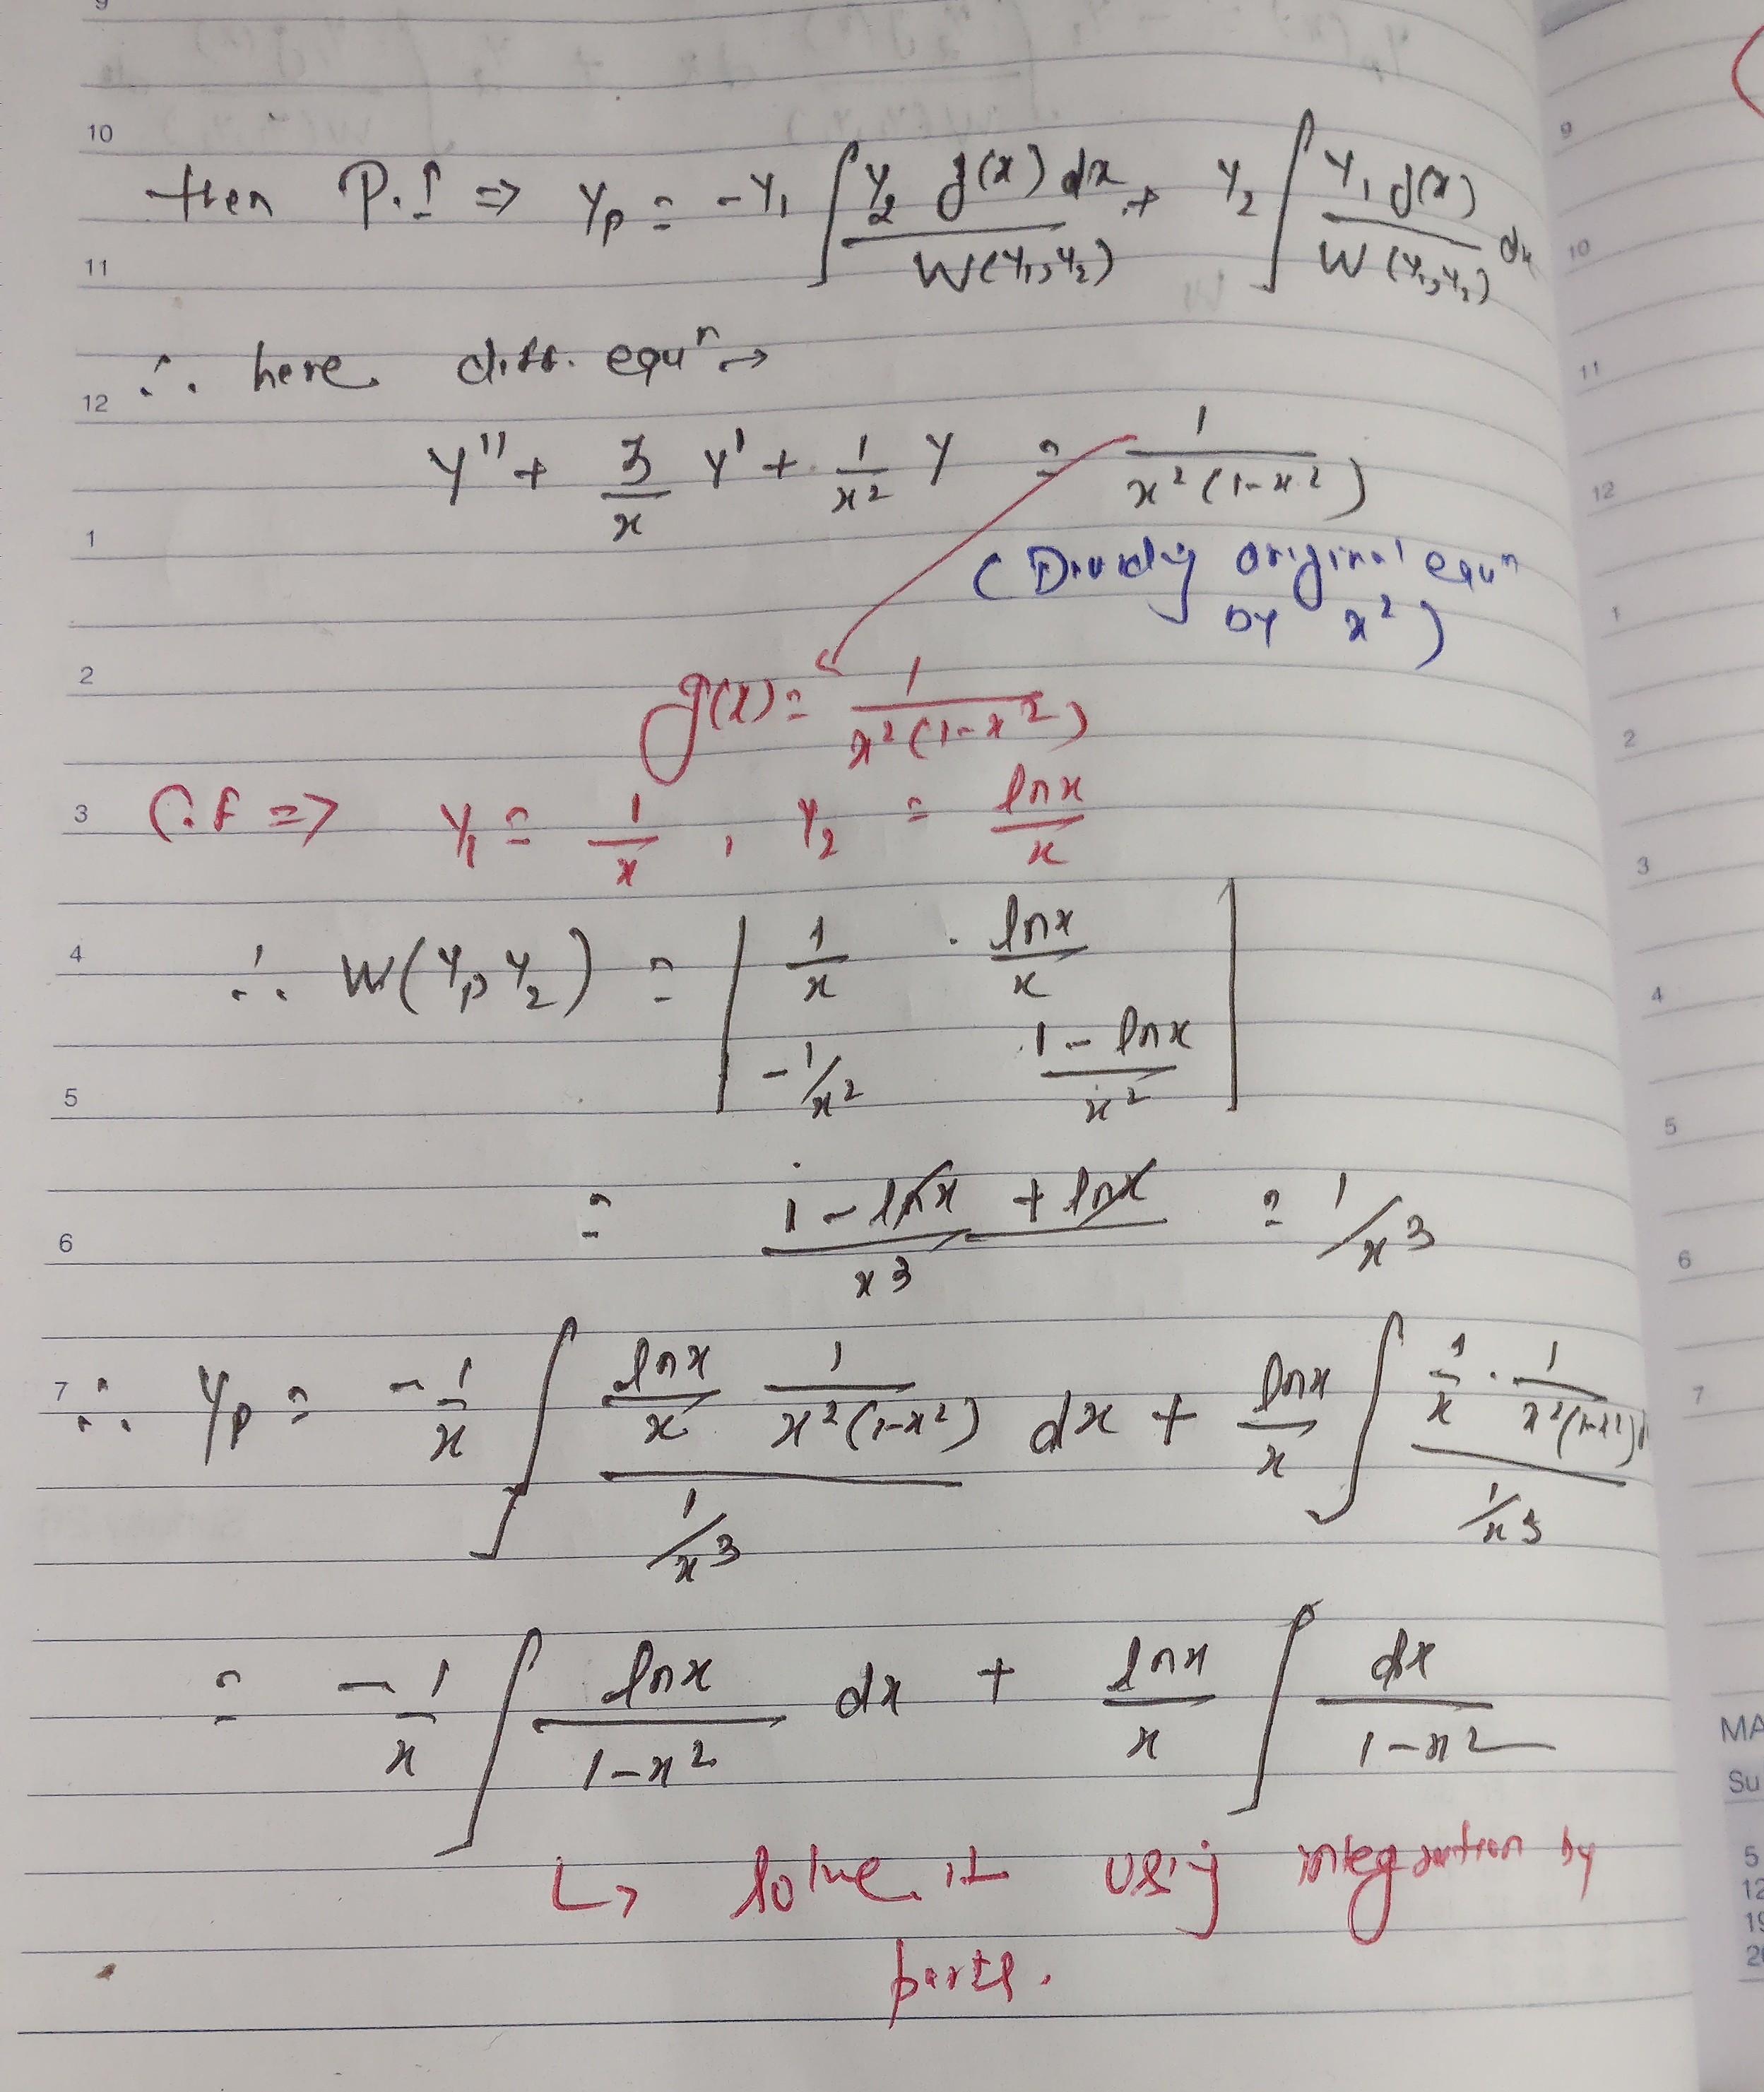 then P.I ⇒ Yp = -Y₁ ∫ Y₂ g(x) dx / W(Y₁,Y₂) + Y₂ ∫ Y₁ g(x) / W(Y₁,Y₂) dx
∴ here diff. equⁿ →
Y'' + 3/x Y' + 1/x² Y = 1/(x²(1-x²))
(Dividing original equⁿ
by x²)
g(x) = 1/(x²(1-x²))
C.F ⇒ Y₁ = 1/x , Y₂ = lnx/x
∴ W(Y₁, Y₂) = | 1/x lnx/x |
| -1/x² (1-lnx)/x² |
= (1 - lnx + lnx)/x³ = 1/x³
∴ Yp = -1/x ∫ (lnx/x 1/(x²(1-x²)))/(1/x³) dx + lnx/x ∫ (1/x · 1/(x²(1-x²)))/(1/x³)
= -1/x ∫ lnx/(1-x²) dx + lnx/x ∫ dx/(1-x²)
↳ solve it using integration by
parts.
10
11
12
1
2
3
4
5
6
7
9
10
11
12
1
2
3
4
5
6
7
MA
Su
5
12
19